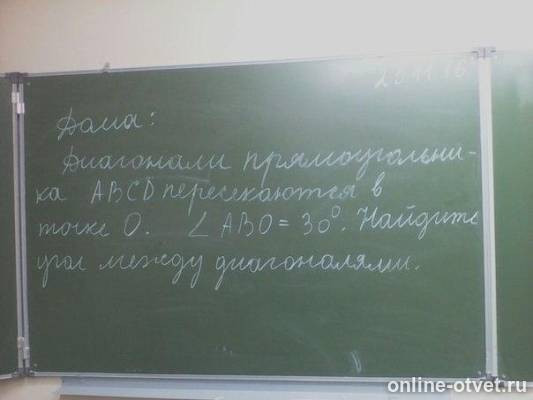 Дома:
Диагонали прямоугольни-
ка ABCD пересекаются в
точке O. ∠ABO = 30°. Найдите
угол между диагоналями.
online-otvet.ru